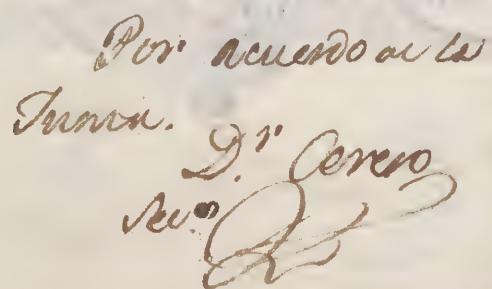 Por acuerdo de la
Junta.
D.r Cerero
Sec.o